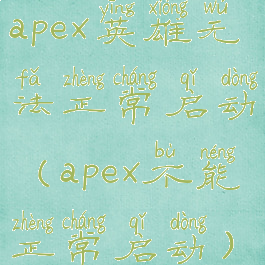 yīng xióng wú
apex英雄无
fǎ zhèng cháng qǐ dòng
法正常启动
bù néng
（apex不能
zhèng cháng qǐ dòng
正常启动）